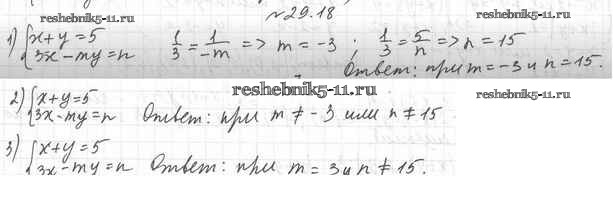 №29.18
reshebnik5-11.ru
reshebnik5-11.ru
1) {x+y=5
3x-my=n
1/3 = 1/-m => m = -3 ; 1/3 = 5/n => n = 15
Ответ: при m = -3 и n = 15.
reshebnik5-11.ru
reshebnik5-11.ru
2) {x+y=5
3x-my=n Ответ: при m ≠ -3 или n ≠ 15
3) {x+y=5
3x-my=n Ответ: при m = 3 и n ≠ 15.